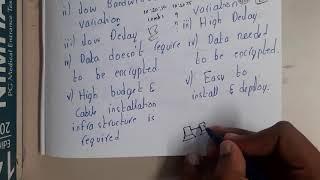 ii) Low Bandwidth
variation
iii) Low Delay.
iv) Data doesn't require
to be encrypted.
v) High budget &
Cable installation
infrastructure is
required
variation.
iii) High Delay.
iv) Data needed
to be encrypted.
v) Easy to
install & deploy.
PG Medical Entrance